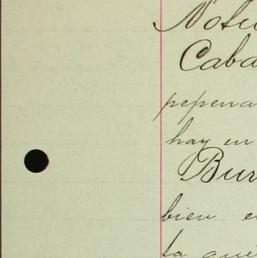 Notu
Caba
pepena
hay en
Bur
bien e
la qui